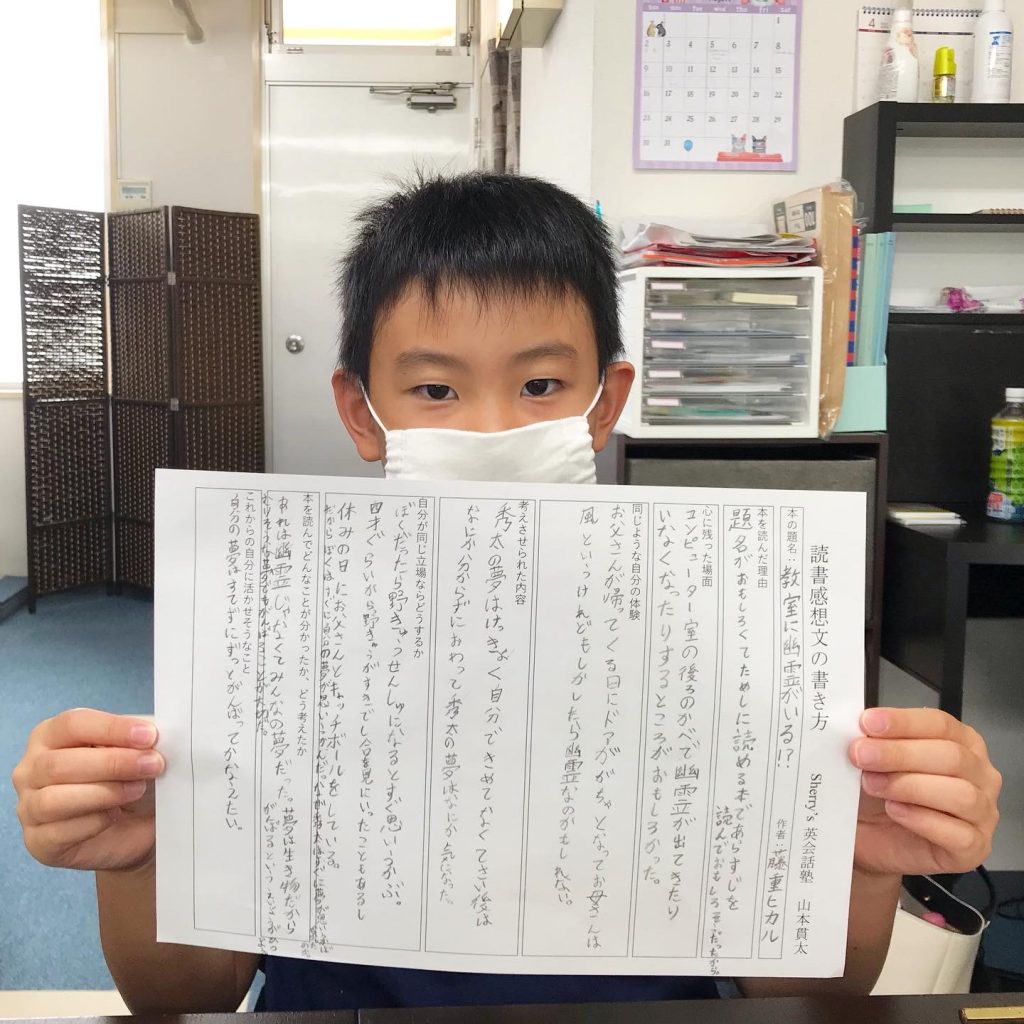 読書感想文の書き方　Sherry's 英会話塾　山本貫太
本の題名：教室に幽霊がいる!?　作者：藤重ヒカル
本を読んだ理由
題名がおもしろくてためしに読める本であらすじを
読んでおもしろそだったから。
心に残った場面
コンピューター室の後ろのかべで幽霊が出てきたり
いなくなったりするところがおもしろかった。
同じような自分の体験
お父さんが帰ってくる日にドアががちゃとなってお母さんは
風といっけれどもしかしたら幽霊なのかもしれない。
考えさせられた内容
秀太の夢はけっきょく自分できめてなくてさい後は
なにか分からずにおわって秀太の夢はなにか気になった。
自分が同じ立場ならどうするか
ぼくだったら野きゅうせんしゅになるとすぐ思いうかぶ。
四才ぐらいから野きゅうがすきでし合を見にいったこともあるし
休みの日にお父さんとキャッチボールをしている。
だからぼくはすぐに自分の夢が思いうかんだ。
本を読んでどんなことが分かったか、どう考えたか
あれは幽霊じゃなくてみんなの夢だった。夢は生き物だから
がんばることが大切だ。
これからの自分に活かせそうなこと
自分の夢はすてずにずっとがんばってかなえたい。
4
Fri
Sat